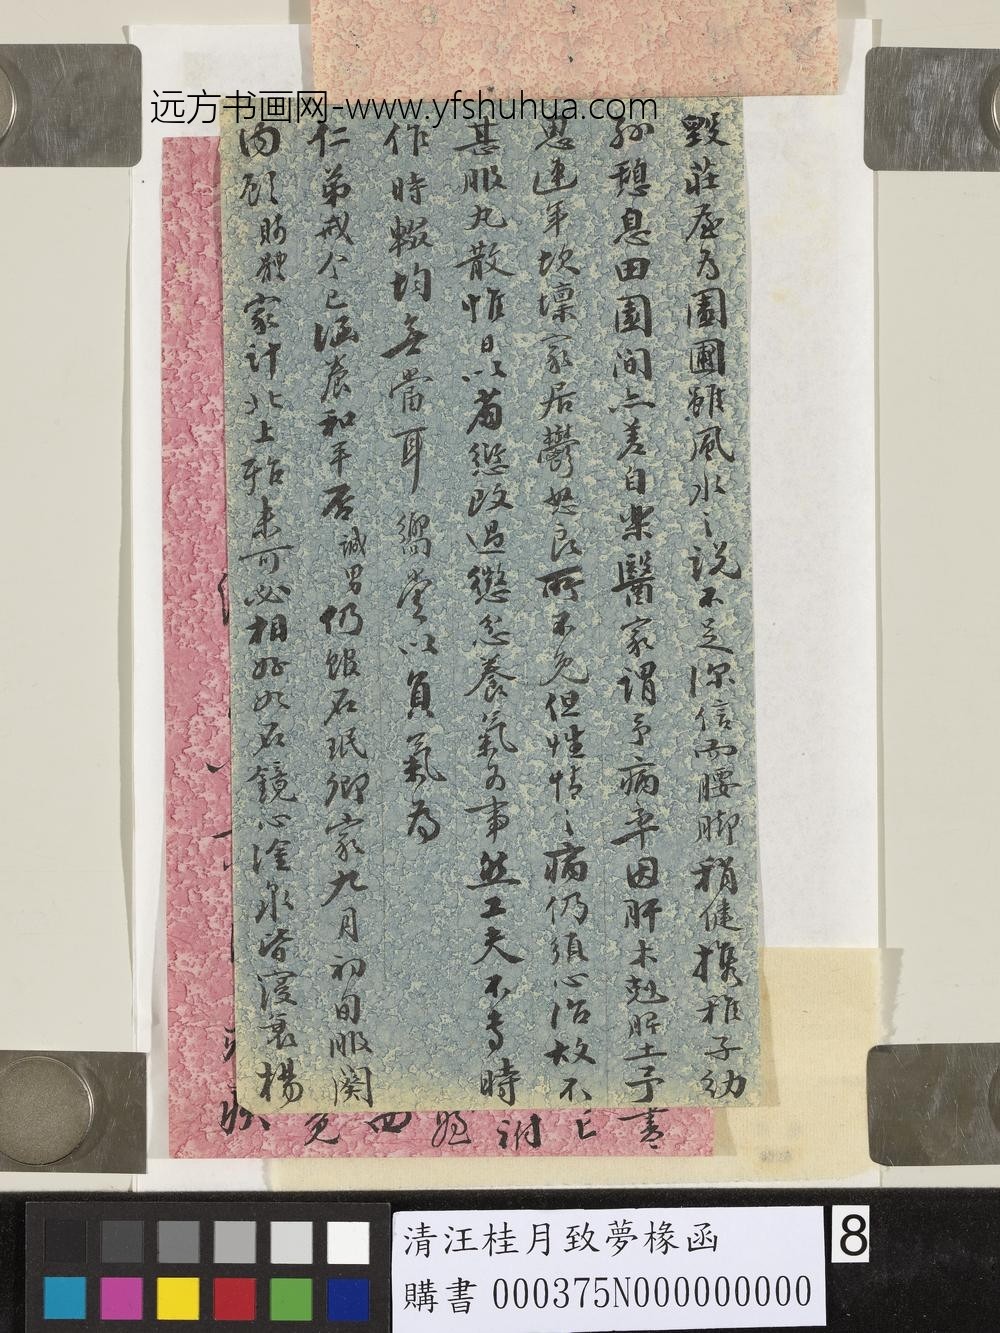 远方书画网-www.yfshuhua.com
毀莊屋为園圃雖風水之說不足深信而腰脚稍健攜稚子幼
孫憩息田園间亦差自樂醫家謂予病率因肝木尅脾土予
思連年坎壈家居鬱怒良所不免但性情之病仍須心治故不
甚服丸散惟日以省愆改過懲忿養氣为事然工夫不專時
作時輟均無當耳嚮嘗以負氣为
仁弟戒今已涵養和平否誠男仍館石珉卿家九月初旬服闋
內顧家计北上殆未可必相好如石鏡心淦泉皆寢衰楊
清汪桂月致夢椽函
購書 000375N000000000
8